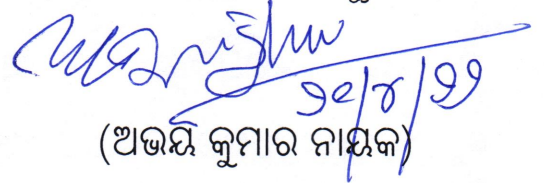 ୨୧/୪/୨୨
(ଅଭୟ କୁମାର ନାୟକ)